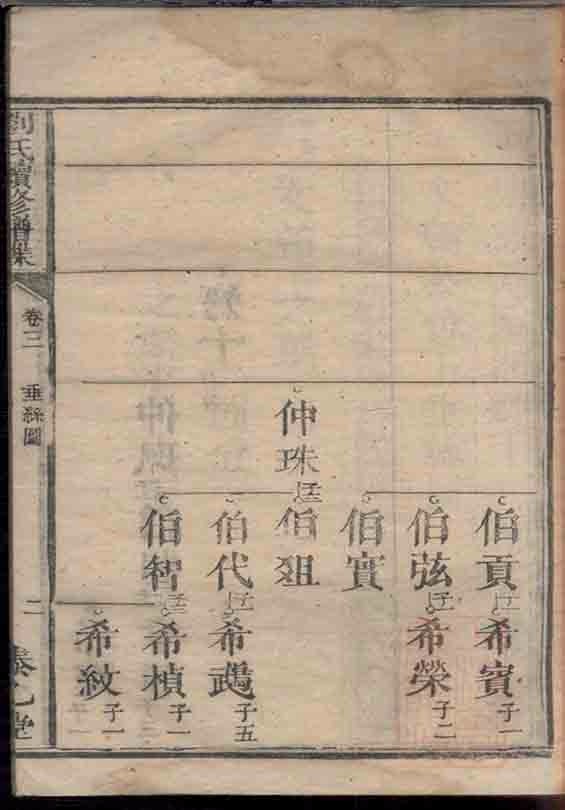 仲珠
伯貢
伯弦
伯實
伯爼
伯代
伯智
希賓 子一
希榮 子二
希鵡 子五
希楨 子一
希紋 子一
劉氏續修譜
卷三
垂絲圖
二
堂